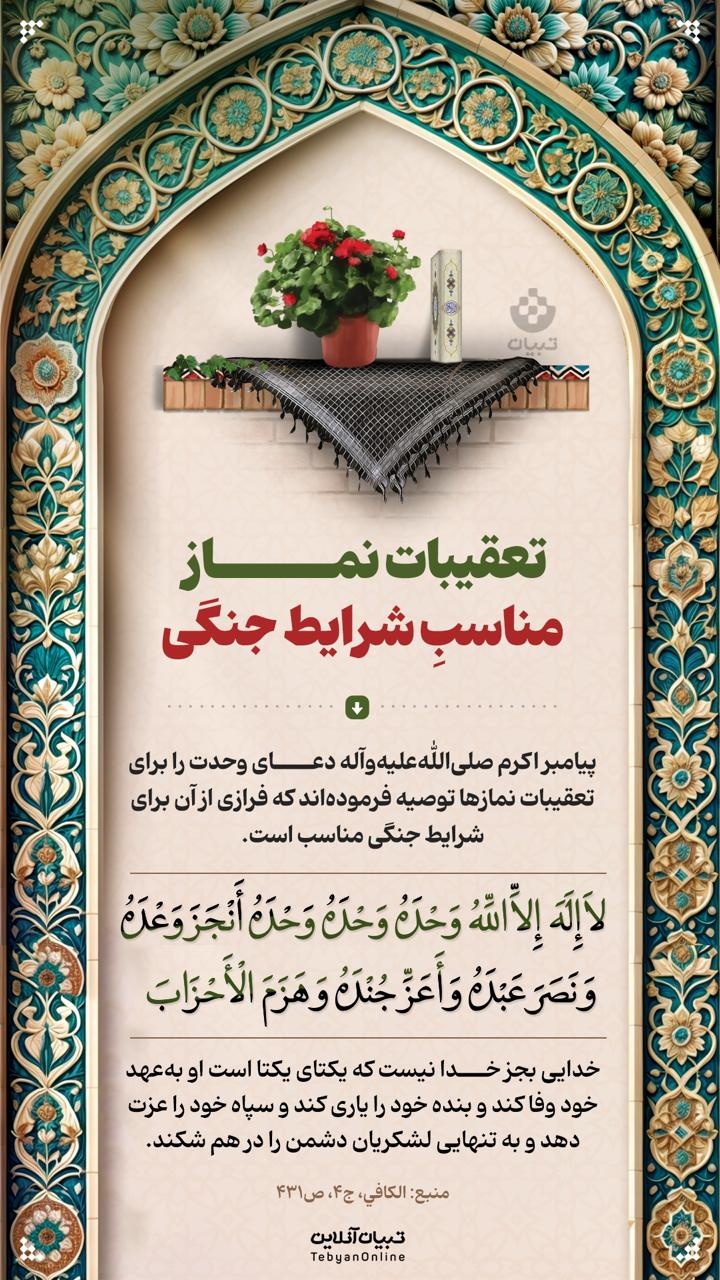 تبیان
تعقیبات نمــــاز
مناسبِ شرایط جنگی
پیامبر اکرم صلی‌الله‌علیه‌وآله دعــــای وحدت را برای
تعقیبات نمازها توصیه فرموده‌اند که فرازی از آن برای
شرایط جنگی مناسب است.
لاَإِلَهَ إِلاَّ اللَّهُ وَحْدَهُ وَحْدَهُ وَحْدَهُ أَنْجَزَ وَعْدَهُ
وَ نَصَرَ عَبْدَهُ وَ أَعَزَّ جُنْدَهُ وَ هَزَمَ الْأَحْزَابَ
خدایی بجز خــــدا نیست که یکتای یکتا است او به‌عهد
خود وفا کند و بنده خود را یاری کند و سپاه خود را عزت
دهد و به تنهایی لشکریان دشمن را در هم شکند.
منبع: الکافي، ج۴، ص۴۳۱
تبیان‌آنلاین
TebyanOnline